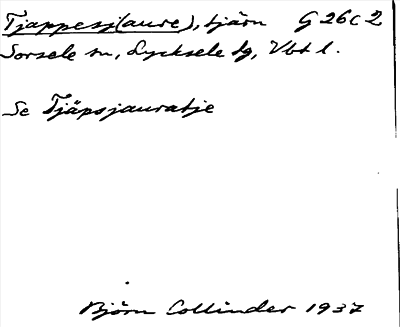 Tjappesj(aure), tjärn G 26 c 2
Sorsele sn, Lycksele lg, Vbt l.
Se Tjäpsjauratje
Björn Collinder 1937